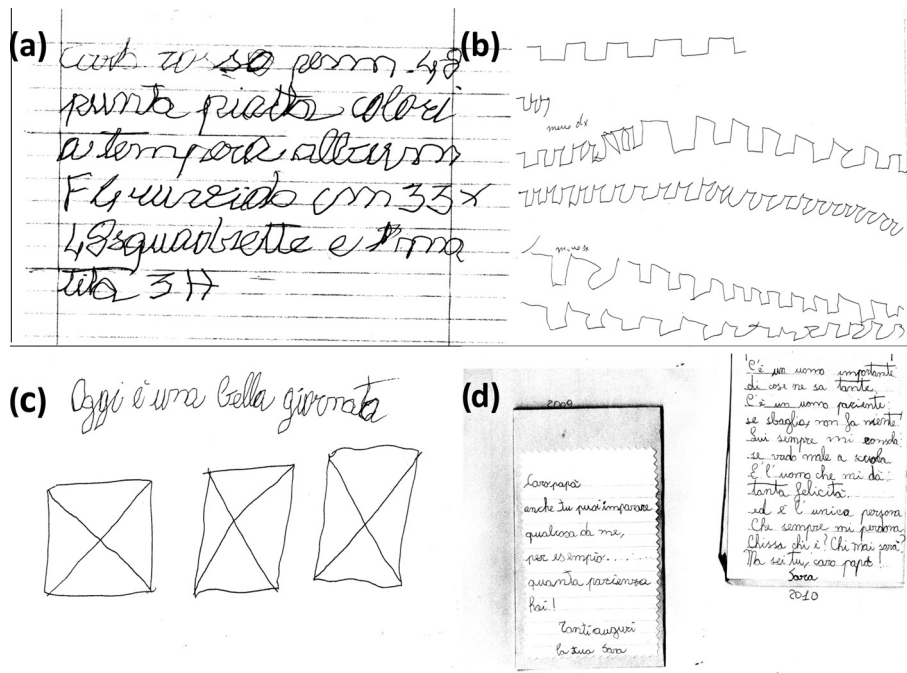 (a)
rosso penn. 48
punta piatta colori
a tempera album
F4 ruvido cm 33x
48 squadrette e 1 ma
tita 3H
(b)
meno dx
(c)
Oggi è una bella giornata
(d)
2009
Caro papà
anche tu puoi imparare
qualcosa da me,
per esempio.....
quanta pazienza
hai!
Tanti auguri
la tua Sara
C'è un uomo importante
di cose ne sa tante.
C'è un uomo paziente
se sbaglia, non fa niente
Lui sempre mi consola
se vado male a scuola.
È l'uomo che mi dà
tanta felicità.
ed è l'unica persona
Che sempre mi perdona
Chissà chi è? Chi mai sarà?
Ma sei tu, caro papà!
Sara
2010